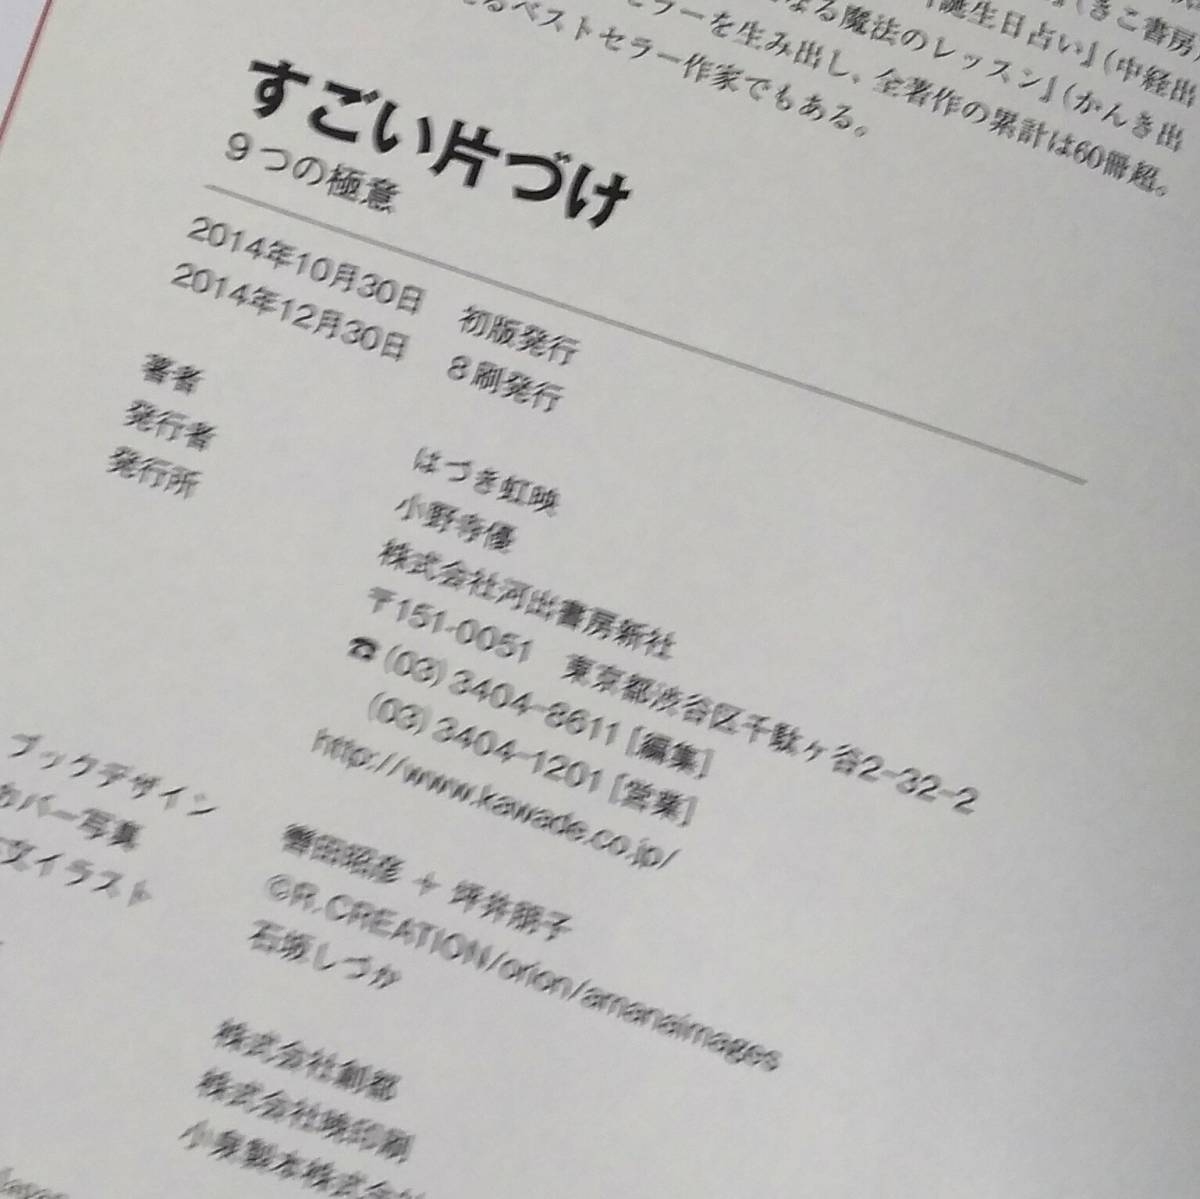 』(きこ書房)
誕生日占い』(中経出
なる魔法のレッスン』(かんき出
ラーを生み出し、全著作の累計は60冊超。
るベストセラー作家でもある。
すごい片づけ
9つの極意
2014年10月30日 初版発行
2014年12月30日 8刷発行
著者 はづき虹映
発行者 小野寺優
発行所 株式会社河出書房新社
〒151-0051 東京都渋谷区千駄ヶ谷2-32-2
☎(03)3404-8611[編集]
(03)3404-1201[営業]
http://www.kawade.co.jp/
ブックデザイン 轡田昭彦 + 坪井朋子
カバー写真 ©R.CREATION/orion/amanaimages
文イラスト 石坂しづか
株式会社創都
株式会社暁印刷
株式会社